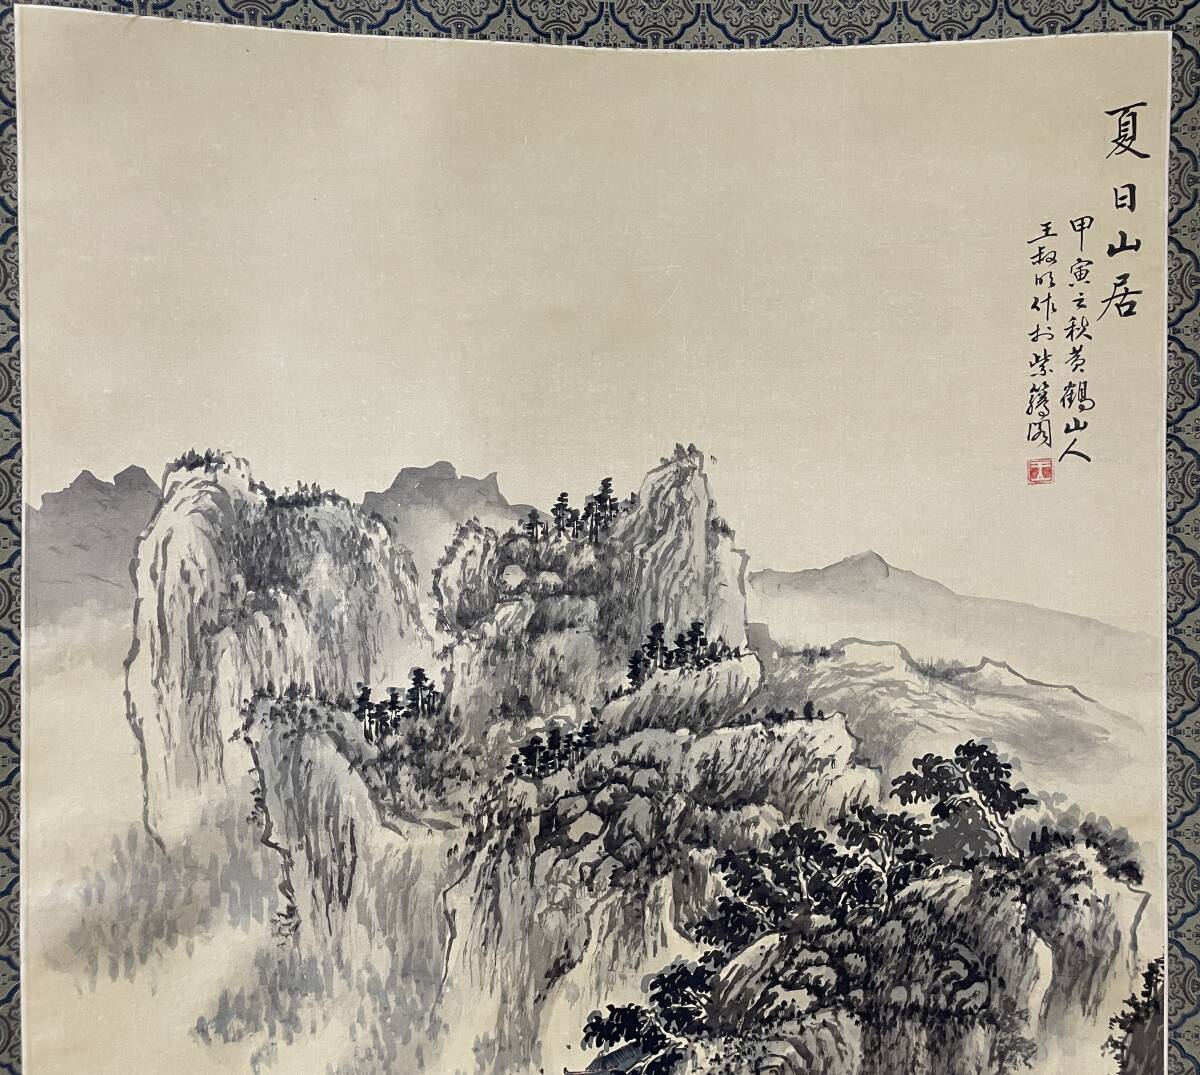 夏日山居
甲寅之秋黄鶴山人
王叔明作於紫籐閣
王